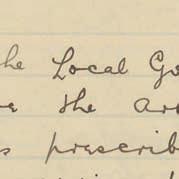 the Local Go
the Ar
s prescrib